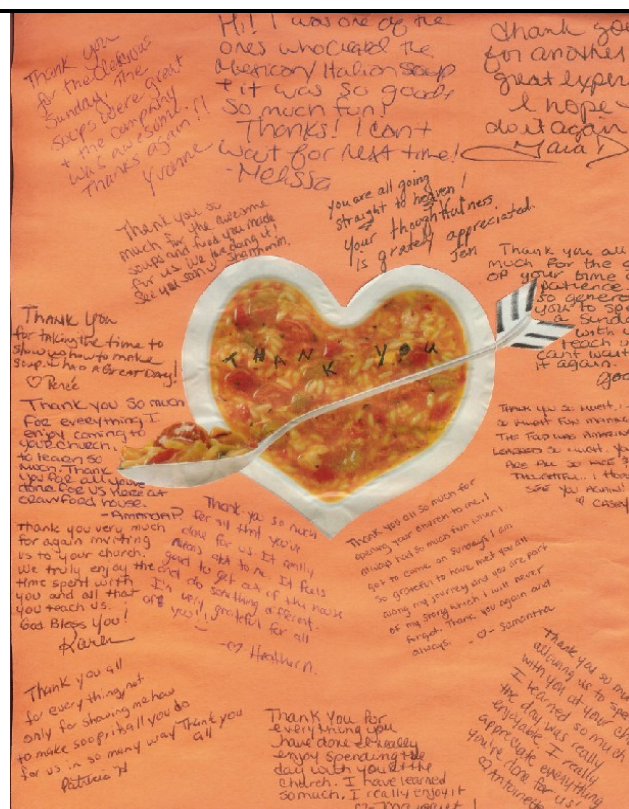 Thank you
for the
Sunday. The
soups were great
+ the company
was awesome.
Thanks again!!
Yvonne
Hi! I was one of the
ones who created the
Mexican/Italian soup
+ it was so good &
so much fun!
Thanks! I can't
wait for next time!
-Melissa
thank you
for another
great exper
I hope
do it again
Tara!
Thank you so
much for the awesome
soups and food you made
for us. We love doing it!
See you soon,
you are all going
straight to heaven!
Your thoughtfulness
is grately appreciated.
Jen
Thank you all
much for the
of your time a
patience.
so genero
you to spe
a Sunda
with u
teach u
cant wait
it again.
THANK YOU
Thank you
for taking the time to
show us how to make
soup. I had A Great Day!
♡ Renée
Thank you so much
for everything I
enjoy coming to
your church
to learn so
much. Thank
you for all you've
done for us here at
crawford house.
Thank you so much..
so much fun making
The food was amazing
learned so much. You
are all so nice &
thoughtful.. I hope
see you again!
♡ Casey
Thank you very much
for again inviting
us to your church.
We truly enjoy the
time spent with
you and all that
you teach us.
God Bless you!
Karen
Thank you so much
for all that you've
done for us. It really
means alot to me. It feels
good to get out of the house
and do something different.
I'm very grateful for all
of you!!
-♡ Heather N.
Thank you all so much for
opening your church to me. I
had so much fun when I
got to come on Sundays I am
so grateful to have met you all
along my journey and you are part
of my story which I will never
forget. Thank you again and
always.
-♡- Samantha
Thank you all
for everything not
only for showing me how
to make soup, it all you do
for us in so many way Thank you
all
Patricia N
Thank you for
everything you
have done I really
enjoy spending the
day with you at the
church. I have learned
so much. I really enjoy it
Thank you so mu
allowing us to spe
with you at your ch
I learned so much
the day was really
enjoyable. I really
appreciate everything
you've done for us!
♡ Antoinette